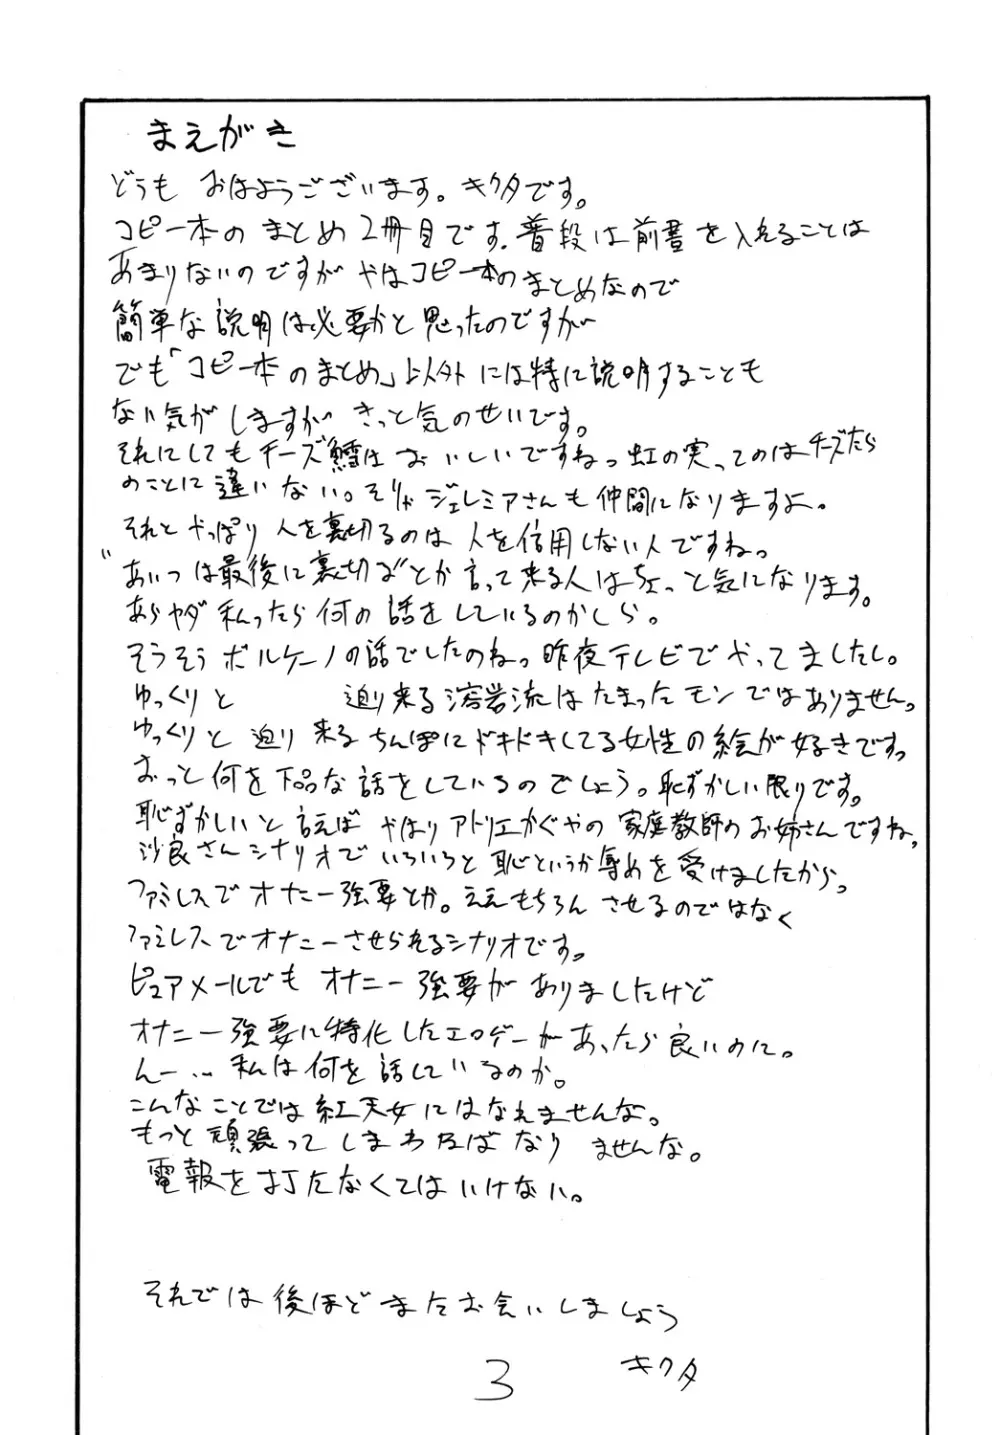 まえがき
どうも おはようございます。キクタです。
コピー本の まとめ 2冊目です。普段は前書を入れることは
あまりないのですが やはコピー本のまとめなので
簡単な説明は必要かと思ったのですが
でも「コピー本のまとめ」以外には特に説明することも
ない気がしますが きっと気のせいです。
それにしてもチーズ鱈はおいしいですね。虹の実ってのはチーズたら
のことに違いない。そりゃジェレミアさんも仲間になりますよ。
それと やっぱり人を裏切るのは人を信用しない人ですね。
"あいつは最後に裏切る"とか言って来る人はちょっと気になります。
あらヤダ私ったら何の話をしているのかしら。
そうそう ボルケーノの話でしたのね。昨夜テレビでやってましたし。
ゆっくりと 迫り来る溶岩流はたまったモンではありません。
ゆっくりと 迫り来るちんぽにドキドキしてる女性の絵が好きです。
おっと何を下品な話をしているのでしょう。恥ずかしい限りです。
恥ずかしいと言えば やはりアトリエかぐやの家庭教師のお姉さんですね。
沙良さんシナリオでいろいろと恥というか辱めを受けましたから。
ファミレスでオナニー強要とか。ええもちろん させるのではなく
ファミレスでオナニーさせられるシナリオです。
ピュアメールでも オナニー強要がありましたけど
オナニー強要に特化したエロゲーがあったら良いのに。
んー… 私は何を話しているのか。
こんなことでは紅天女にはなれませんな。
もっと頑張ってしまわねばなりませんな。
電報を打たなくてはいけない。
それでは後ほどまたお会いしましょう
キクタ
3